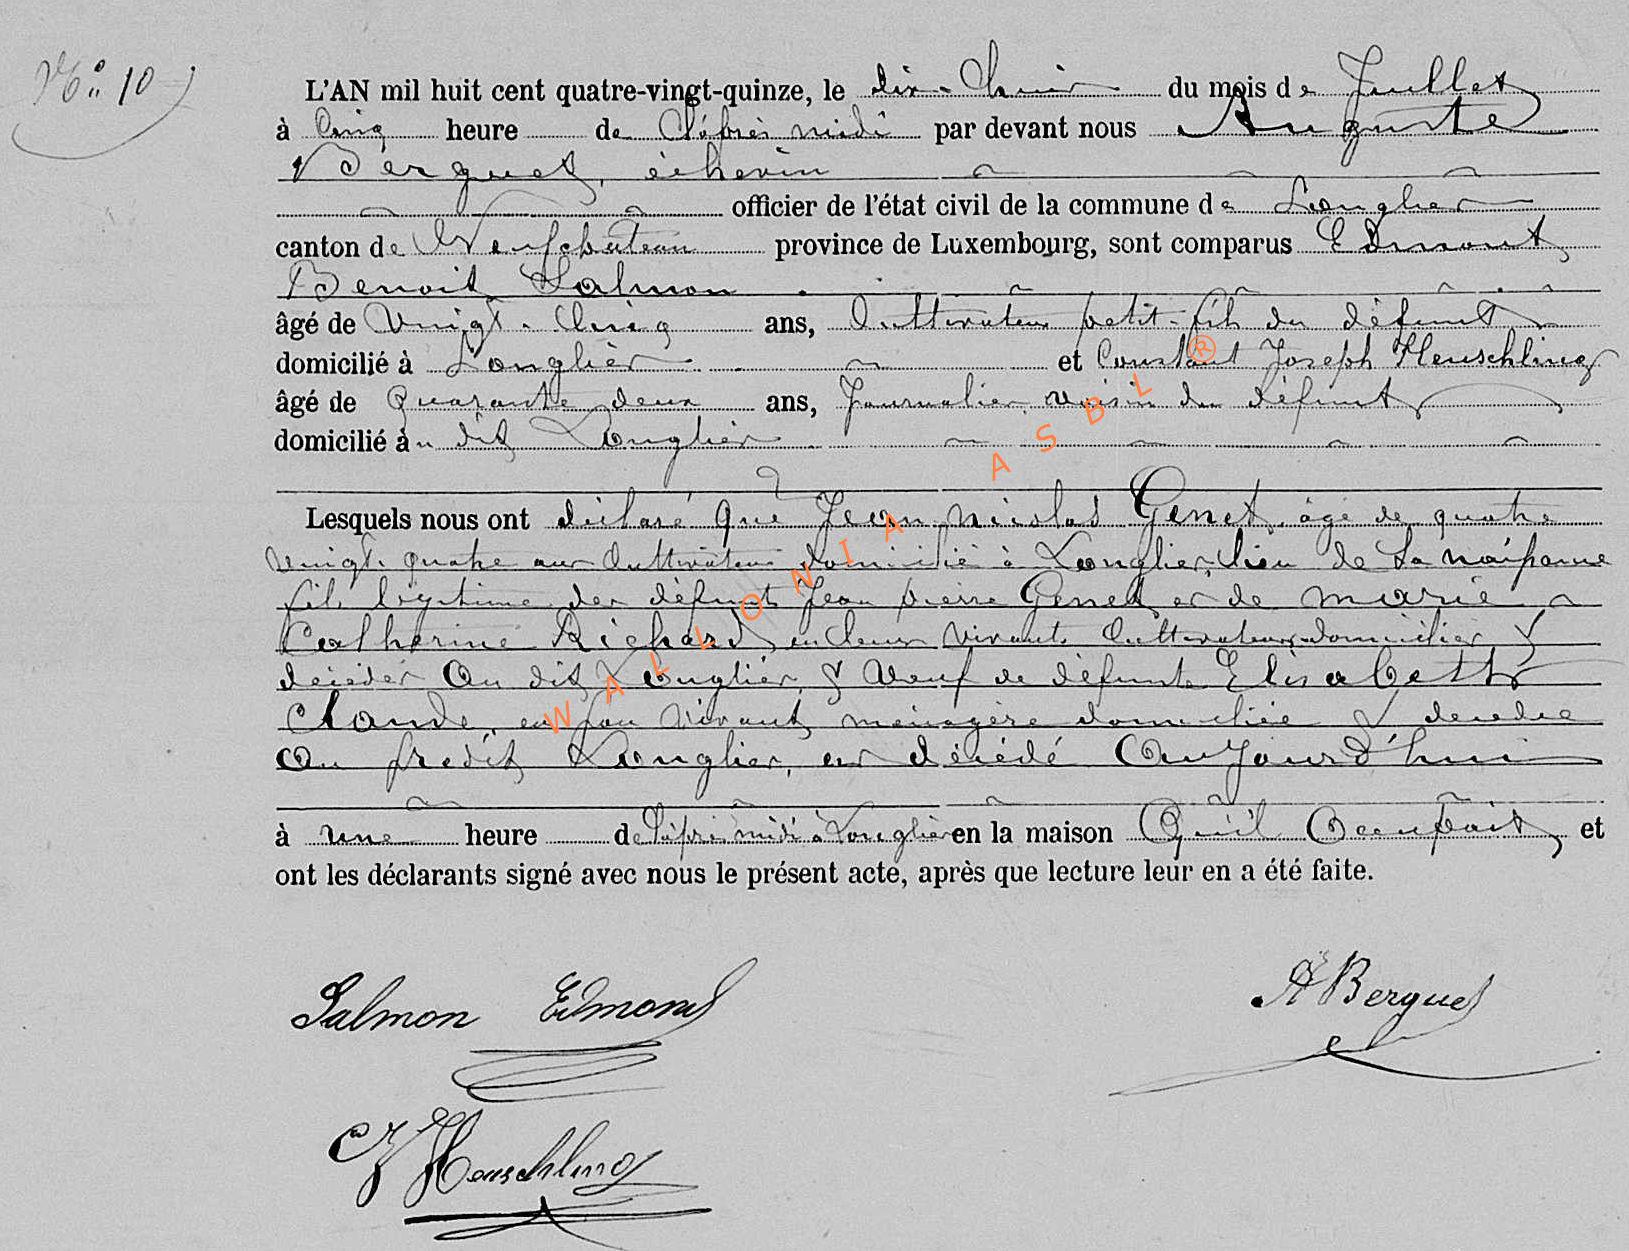 No: 10
L'AN mil huit cent quatre-vingt-quinze, le dix-huit du mois de Juillet
à Cinq heure de L'après midi par devant nous Auguste
Berquet, échevin
officier de l'état civil de la commune de Longlier
canton de Neufchateau province de Luxembourg, sont comparus Edmont
Benoit Salmon
âgé de Vingt-Cinq ans, Cultivateur petit-fils du défunt
domicilié à Longlier et Constant Joseph Heuschling
âgé de Quarante deux ans, Journalier voisin du défunt
domicilié àu dit Longlier
Lesquels nous ont déclaré que Jean nicolas Genet, âgé de quatre
vingt-quatre ans Cultivateur domicilié à Longlier lieu de sa naissance
fils légitime des défunts Jean pierre Genet et de marie
Catherine Richard en leur vivant Cultivateurs domiciliés &
décédés Au dit Longlier & Veuf de défunte Elisabeth
Claude, en son vivant, ménagère domiciliée & décédée
Au predit Longlier, est décédé Aujourd'hui
à une heure de L'après midi à Longlier en la maison Qu'il Occupait, et
ont les déclarants signé avec nous le présent acte, après que lecture leur en a été faite.
Salmon Edmond
Ate Berquet
C J Heuschling
WALLONIA ASBL ®